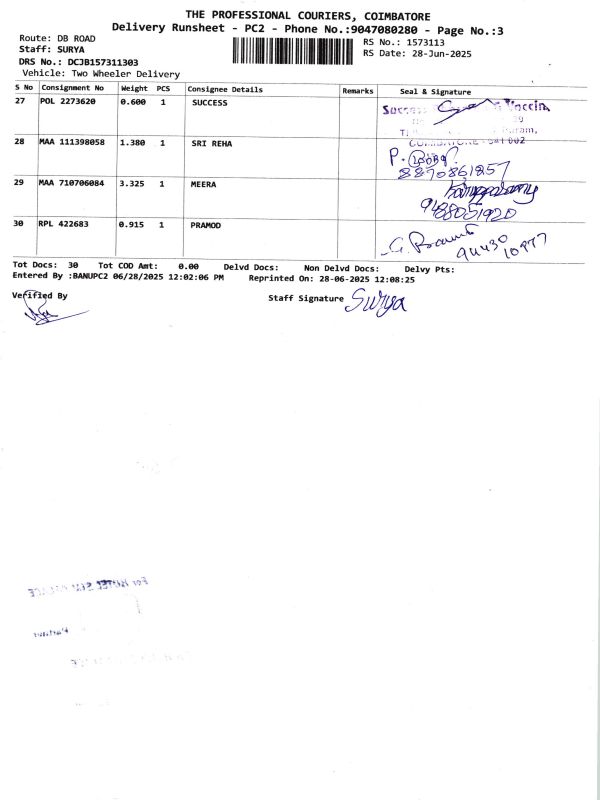 THE PROFESSIONAL COURIERS, COIMBATORE
Delivery Runsheet - PC2 - Phone No.:9047080280 - Page No.:3
Route: DB ROAD
RS No.: 1573113
Staff: SURYA
RS Date: 28-Jun-2025
DRS No.: DCJB157311303
Vehicle: Two Wheeler Delivery
S No Consignment No Weight PCS Consignee Details Remarks Seal & Signature
27 POL 2273620 0.600 1 SUCCESS
Vaccin
28 MAA 111398058 1.380 1 SRI REHA
COIMBATORE - 641 002
P.
8870861857
29 MAA 710706084 3.325 1 MEERA
9488051920
30 RPL 422683 0.915 1 PRAMOD
94430
10977
Tot Docs: 30 Tot COD Amt: 0.00 Delvd Docs: Non Delvd Docs: Delvy Pts:
Entered By :BANUPC2 06/28/2025 12:02:06 PM Reprinted On: 28-06-2025 12:08:25
Verified By
Staff Signature Surya
Partner